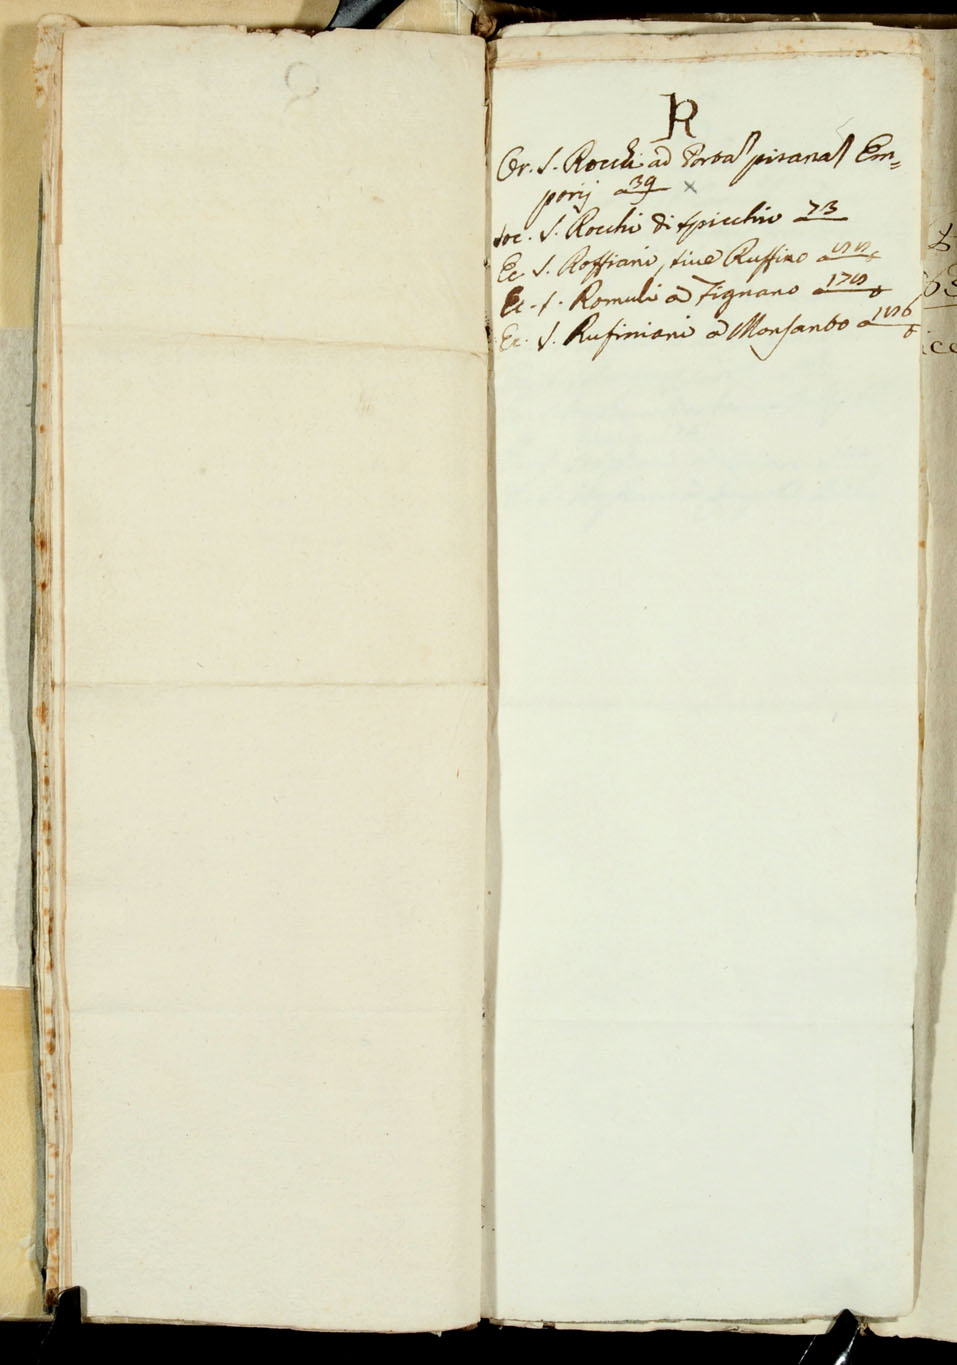 R
Or. S. Rocchi ad Porta pisana Em=
porij a 39 x
Soc. S. Rocchi di Spicchio 73
Ec. S. Roffiani, sive Ruffino a
Ec. S. Romuli a Fignano a
Ec. S. Rufiniani a Monsanto a